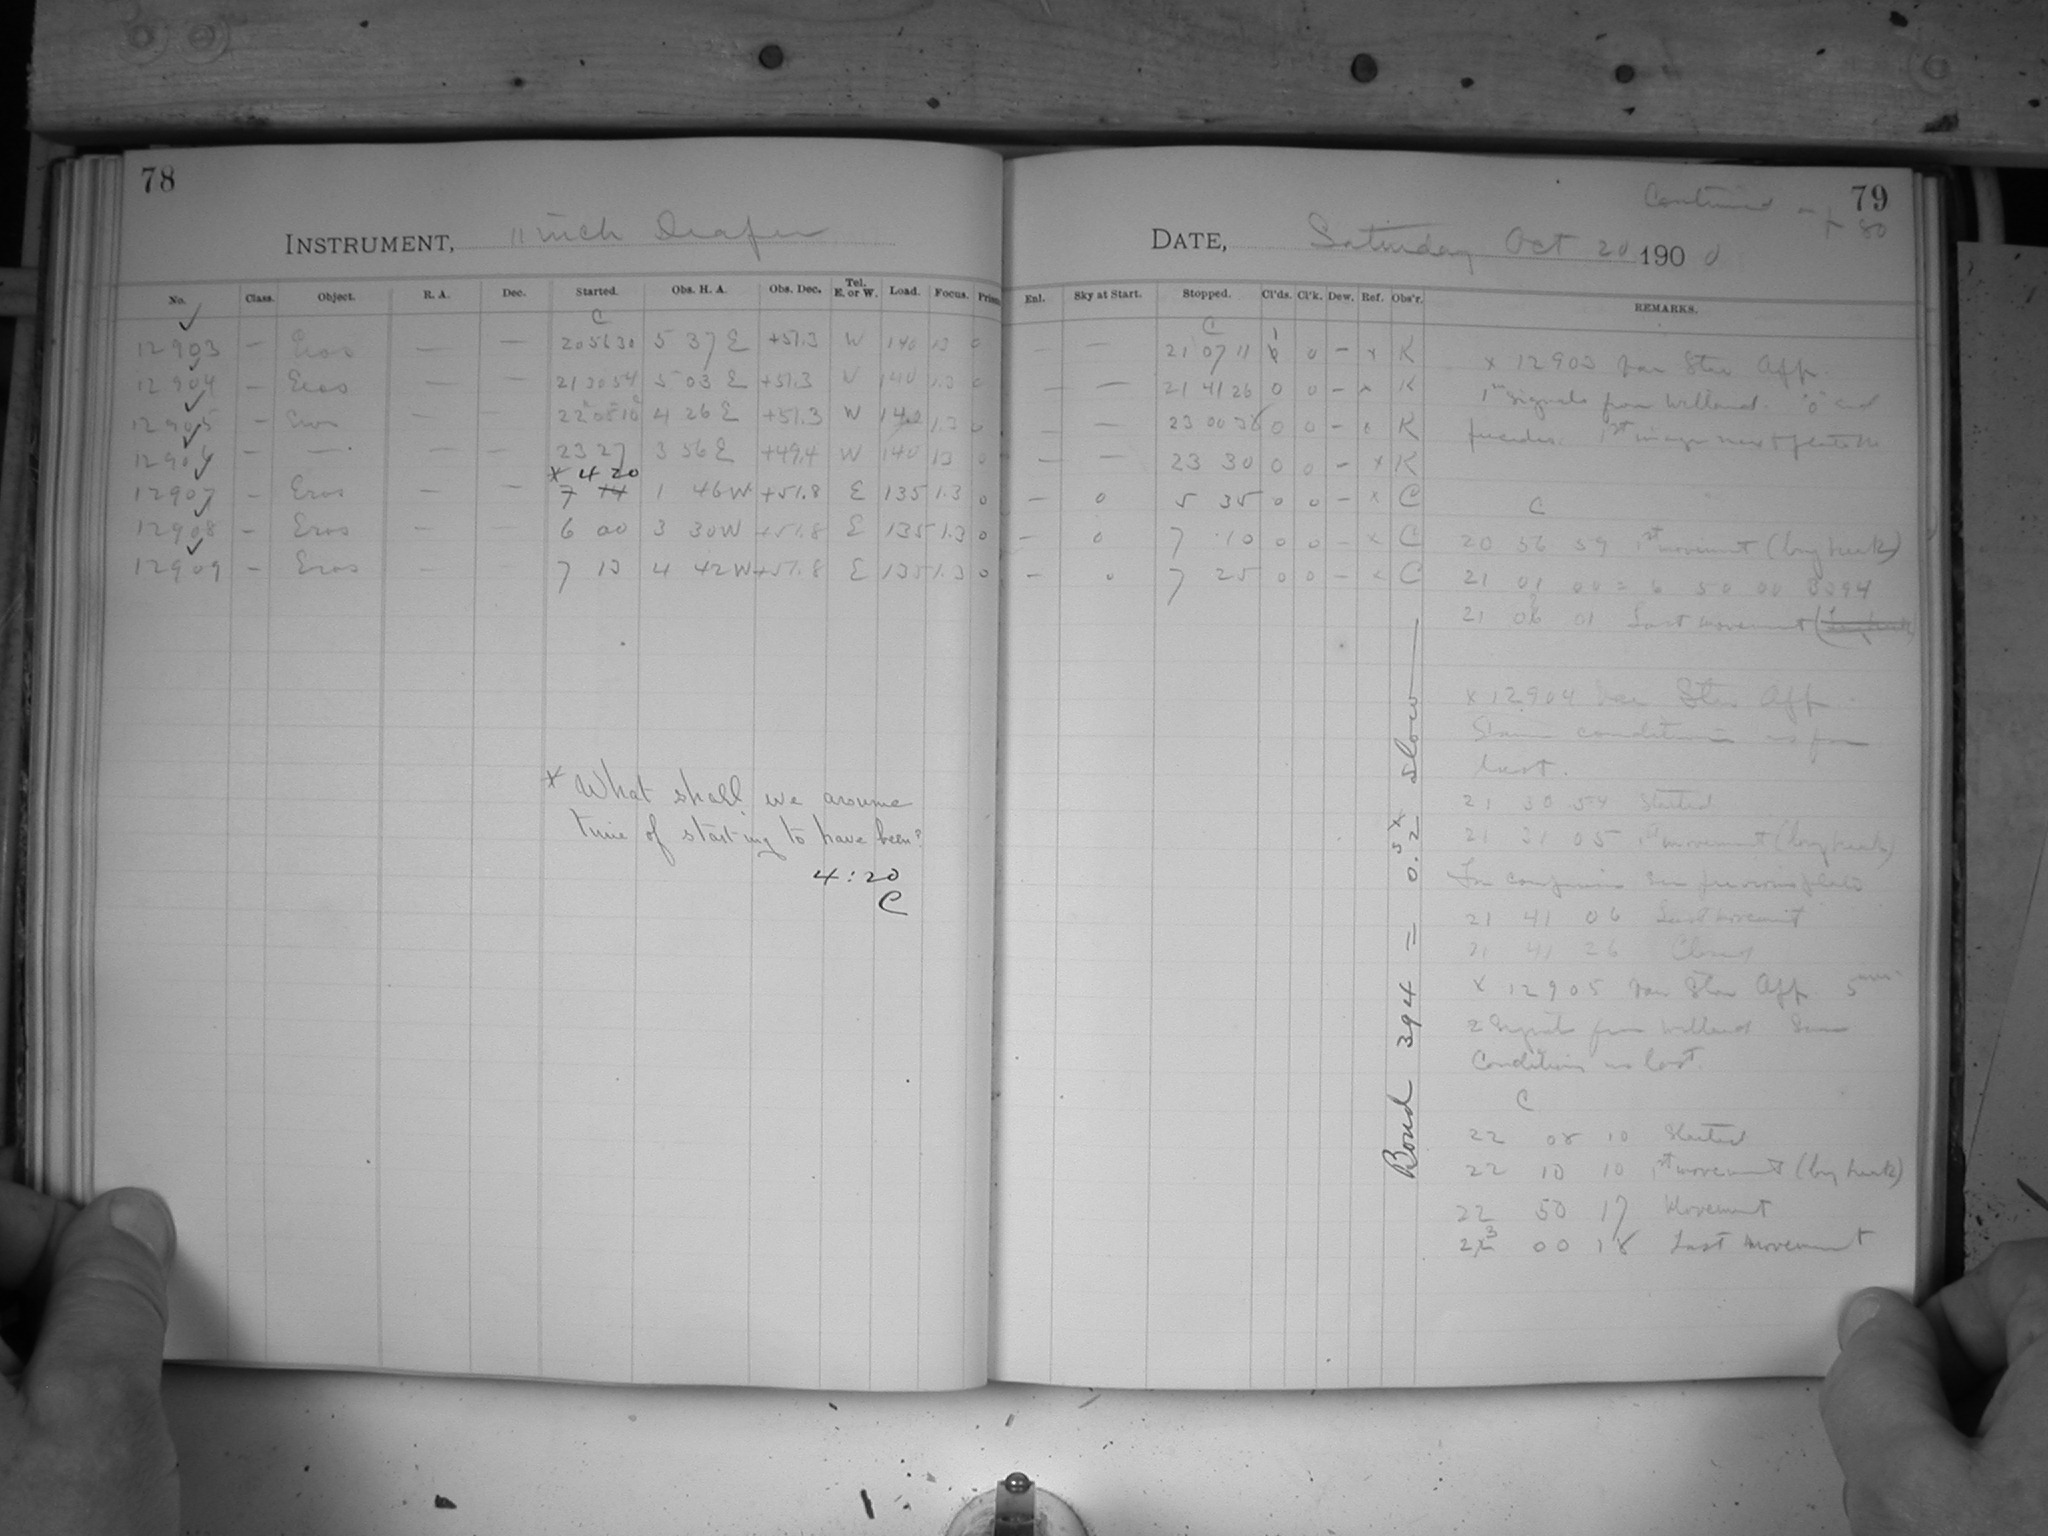 78
INSTRUMENT, 11 inch Draper
No. Class. Object. R. A. Dec. Started. Obs. H. A. Obs. Dec. Tel. E. or W. Load. Focus. Prism
C
12903 — Eros — — 20 56 30 5 37 E +51.3 W 140 1.3 0
12904 — Eros — — 21 30 54 5 03 E +51.3 W 140 1.3 0
12905 — Eros — — 22 08 10 4 26 E +51.3 W 140 1.3 0
12906 — — — — 23 27 3 56 E +49.4 W 140 1.3 0
x 4 20
12907 — Eros — — 7 14 1 46 W +51.8 E 135 1.3 0
12908 — Eros — — 6 00 3 30 W +51.8 E 135 1.3 0
12909 — Eros — — 7 13 4 42 W +51.8 E 135 1.3 0
x What shall we assume
time of starting to have been?
4:20
C
79
Continued 80
DATE, Saturday Oct 20 1900
Enl. Sky at Start. Stopped. Cl'ds. Cl'k. Dew. Ref. Obs'r. REMARKS.
C
— — 21 07 11 1 0 — x K
— — 21 41 26 0 0 — x K
— — 23 00 38 0 0 — x K
— — 23 30 0 0 — x K
— 0 5 35 0 0 — x C
— 0 7 10 0 0 — x C
— 0 7 25 0 0 — x C
Bond 394 = 0.2s x slow
x 12903 Var Star App.
signals from Willard.
C
20 56 59 1st movement (long
21 01 00 = 6 50 00 B 394
21 06 01 Last movement
x 12904 Var Star App
Same conditions as for
last.
21 30 54 Started
21 31 05 1st movement (long
For comparison see previous plate
21 41 06 Last movement
21 41 26 Closed
x 12905 Var Star App. 5
2 Signals from Willard Same
Conditions as last.
C
22 08 10 Started
22 10 10 1st movement (long
22 50 17 Movement
23 00 18 Last movement